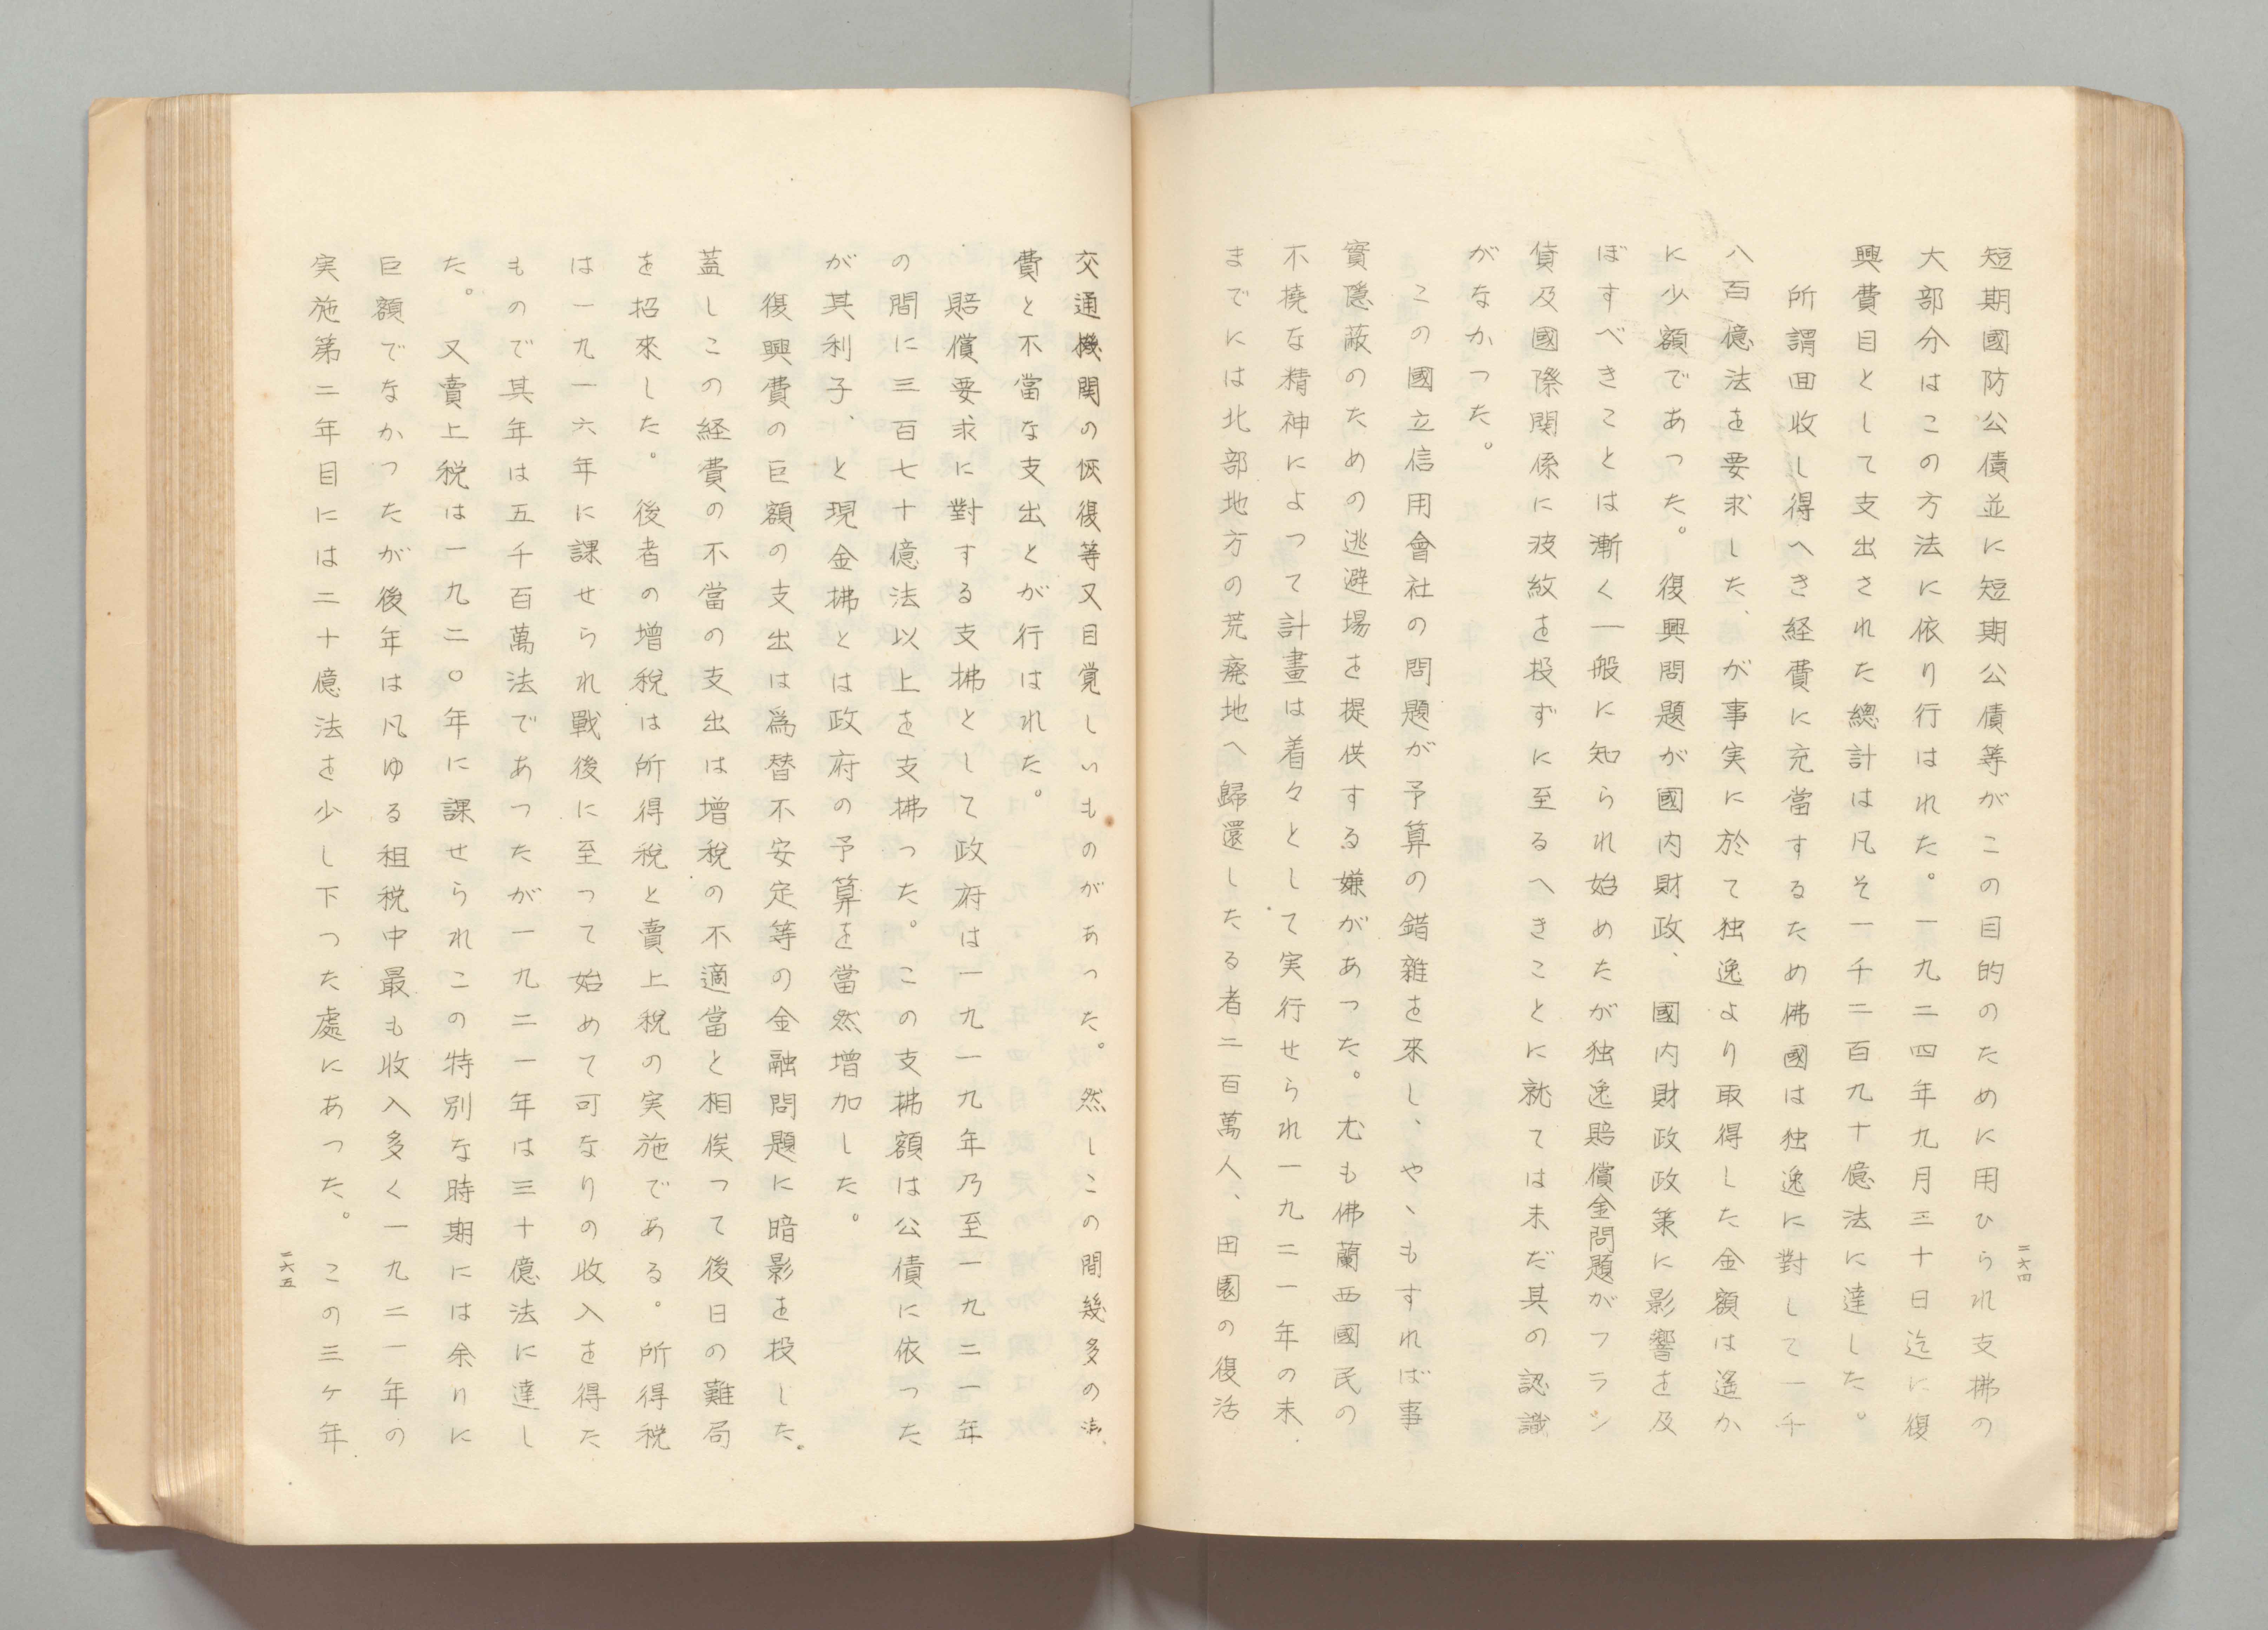 短期國防公債並に短期公債等がこの目的のために用ひられ支拂の
大部分はこの方法に依り行はれた。一九二四年九月三十日迄に復
興費目として支出された總計は凡そ一千二百九十億法に達した。
所謂回收し得へき経費に充當するため佛國は独逸に對して一千
八百億法を要求した、が事実に於て独逸より取得した金額は遙か
に少額であった。復興問題が國内財政、國内財政政策に影響を及
ぼすべきことは漸く一般に知られ始めたが独逸賠償金問題がフラン
貨及國際関係に波紋を投ずに至るへきことに就ては未だ其の認識
がなかった。
この國立信用會社の問題が予算の錯雜を來し、やヽもすれば事
實隱蔽のための逃避場を提供する嫌があった。尤も佛蘭西國民の
不撓な精神によって計畫は着々として実行せられ一九二一年の末
までには北部地方の荒廃地へ歸還したる者二百萬人、田園の復活
二六四
交通機関の恢復等又目覚しいものがあった。然しこの間幾多の浪
費と不當な支出とが行はれた。
賠償要求に對する支拂として政府は一九一九年乃至一九二一年
の間に三百七十億法以上を支拂った。この支拂額は公債に依った
が其利子、と現金拂とは政府の予算を當然増加した。
復興費の巨額の支出は爲替不安定等の金融問題に暗影を投した。
蓋しこの経費の不當の支出は增税の不適當と相俟って後日の難局
を招來した。後者の增税は所得税と賣上税の実施である。所得税
は一九一六年に課せられ戰後に至って始めて可なりの收入を得た
もので其年は五千百萬法であつたが一九二一年は三十億法に達し
た。又賣上税は一九二〇年に課せられこの特別な時期には余りに
巨額でなかつたが後年は凡ゆる租税中最も收入多く一九二一年の
実施第二年目には二十億法を少し下つた處にあつた。この三ヶ年
二六五